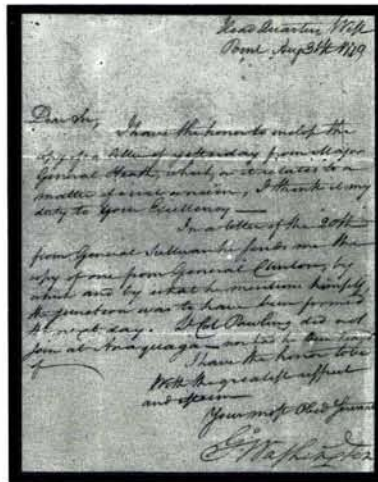 Head Quarters West
Point Aug 30th 1779
Dear Sir,
I have the honor to inclose the
copy of a letter of yesterday from Major
General Heath, which, as it relates to a
matter of civil concern, I think it my
duty to Your Excellency —
In a letter of the 20th
from General Sullivan he sends me the
copy of one from General Clinton, by
which and by what he mentions himself
the junction was to have been formed
the next day. Lt Col Pauling did not
join at Anaquaga — nor has he been heard
of
I have the honor to be
With the greatest respect
and esteem
Your most Obed Servant
Go Washington